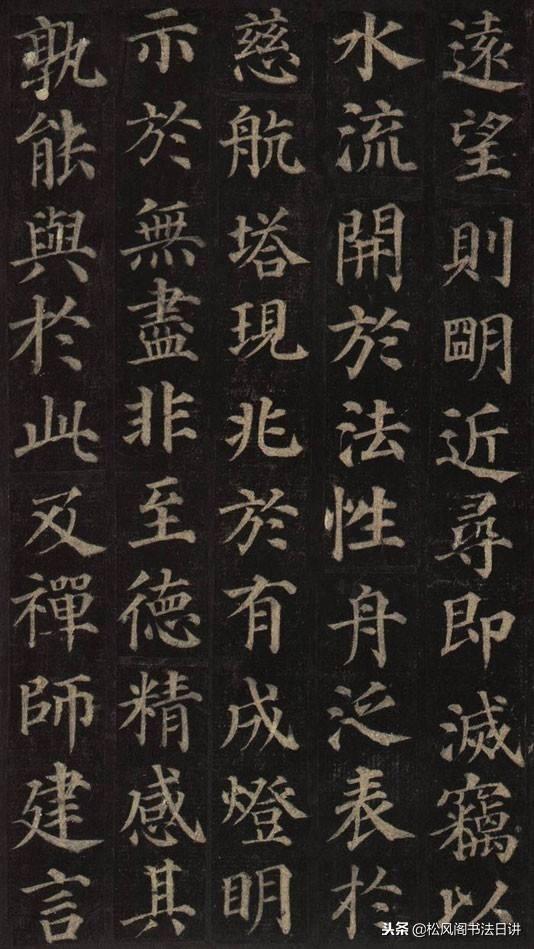 遠望則朙近尋即滅竊以
水流開於法性舟泛表於
慈航塔現兆於有成燈朙
示於無盡非至德精感其
孰能與於此及禪師建言
头条 @松风阁书法日讲